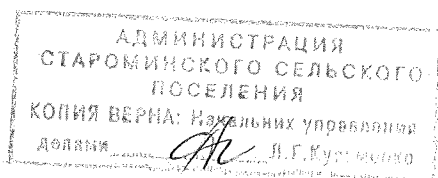 АДМИНИСТРАЦИЯ
СТАРОМИНСКОГО СЕЛЬСКОГО
ПОСЕЛЕНИЯ
КОПИЯ ВЕРНА: Начальник управления
делами Л.Г.